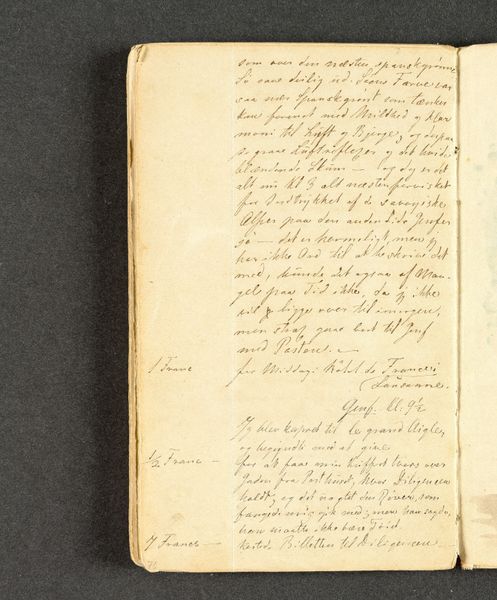 som over den næsten spanskgrønne
Sø saae deilig ud. Søens Farve var
saa nær Spanskgrønt som tænkes
kan forenet med Mildhed og Har
moni til Luft og Bjerge, og
graae Luftreflexer og det hvide
blændende Skum — og dog er det
alt nu Kl 3 alt næsten forvisket
for Indtrykket af de savoyiske
Alper paa den anden Side Genfer
sø — det er herreligt, men jeg
har ikke Ord til at beskrive det
med, kunde det ogsaa af Man-
gel paa Tid ikke, da jeg ikke
vil ligge over til imorgen,
men strax gaae bort til Genf
med Posten. —
1 Franc for Middag i Hôtel de France i
Lausanne.
Genf. Kl. 9½
Jeg blev kapret til le grand Aigle,
og begyndte med at give
½ Franc — for at faae min Kuffert tvers over
Gaden fra Posthuset, hvor Diligencen
holdt, og det uagtet den Røver, som
fangede mig, gik med; men han sagde,
han maatte ikke bære Tøid.
7 Francs — kostede Billetten til Diligencen —